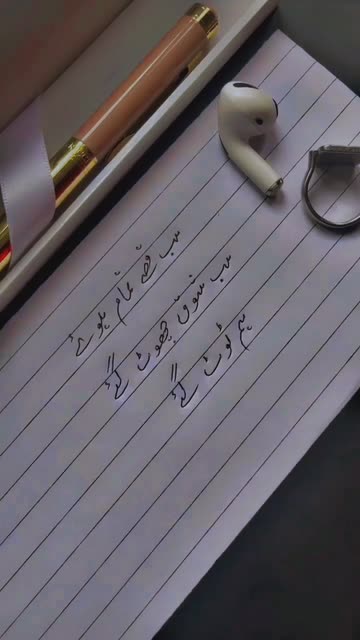 سب قصے تمام ہوئے
سب شوق چھوٹ گئے
ہم ٹوٹ گئے